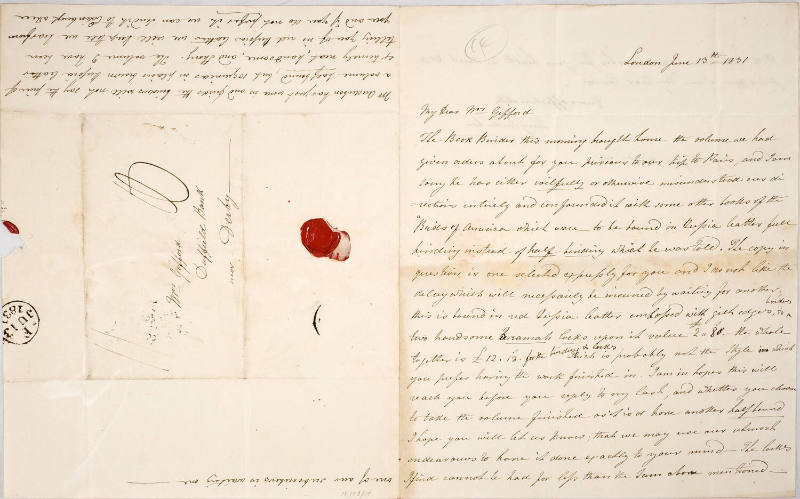 London June 13th 1831
My Dear Mrs Gifford
The Book Binder this morning brought home the volume we had
given orders about for you previous to our trip to Paris, and I am
sorry he has either wilfully or otherwise misunderstood our di
-rections entirely and confounded it with some other books of the
"Birds of America which were to be bound in Russia leather full
binding instead of half binding which he was told. The copy in
question is one selected expressly for you and I do not like the
delay which will necessarily be incurred by waiting for another,
this is bound in red Russia leather embossed with gilt edges,
two handsome Bramah locks upon it value £2.8 the whole
together is £12.13. for the binding & locks which is probably not the style in which
you prefer having the work finished in. I am in hopes this will
reach you before you reply to my last, and whether you choose
to take the volume finished as it is or have another half bound
I hope you will let us know, that we may use our utmost
endeavours to have it done exactly to your mind — The locks
I find cannot be had for less than the sum above mentioned —
one of our subscribers is waiting one
Mrs Gifford
Duffield Bank
near Derby
Mr Audubon has just come in and finds the binder will not say the price of
a volume half bound but 10 guineas in plain brown Russia leather
very neat, handsome and strong. The volume I have been
telling you of in red Russia leather we will keep till we hear from
you and if you do not prefer it we can send it to Edinburgh when